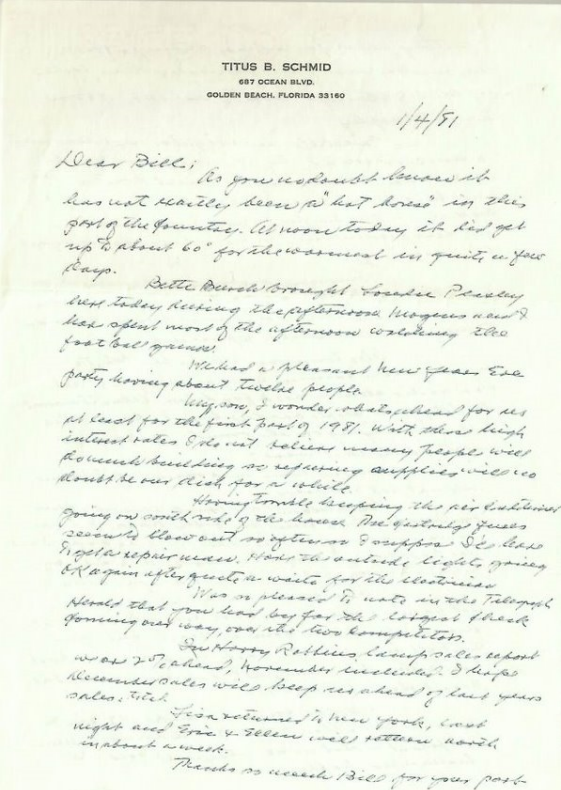 TITUS B. SCHMID
687 OCEAN BLVD.
GOLDEN BEACH, FLORIDA 33160
1/4/81
Dear Bill;
As you no doubt know it
has not exactly been a "hot house" in this
part of the country. At noon today it had got
up to about 60° for the warmest in quite a few
days.
Bette brought
here today during the afternoon. and I
have spent most of the afternoon watching the
football games.
We had a pleasant New Years Eve
party having about twelve people.
I wonder whats ahead for us
at least for the first part of 1981. With these high
interest rates I do not believe many people will
do much building so supplies will no
doubt be our dish for a while.
Having trouble keeping the air conditioner
going on south side of the house. The fuses
seem to blow out so often so I suppose I'll have
to get a repair man. Have the outside lights going
OK again after quite a wait for the electrician.
Was so pleased to note in the Telegraph
Herald that you had by far the largest check
coming our way, over the two competitors.
In Harry Robbins Lamp sales report
we are 2% ahead, November included. I hope
December sales will keep us ahead of last years
sales, total.
Lisa returned to New York, last
night and Eric & Ellen will return north
in about a week.
Thanks so much Bill for your part